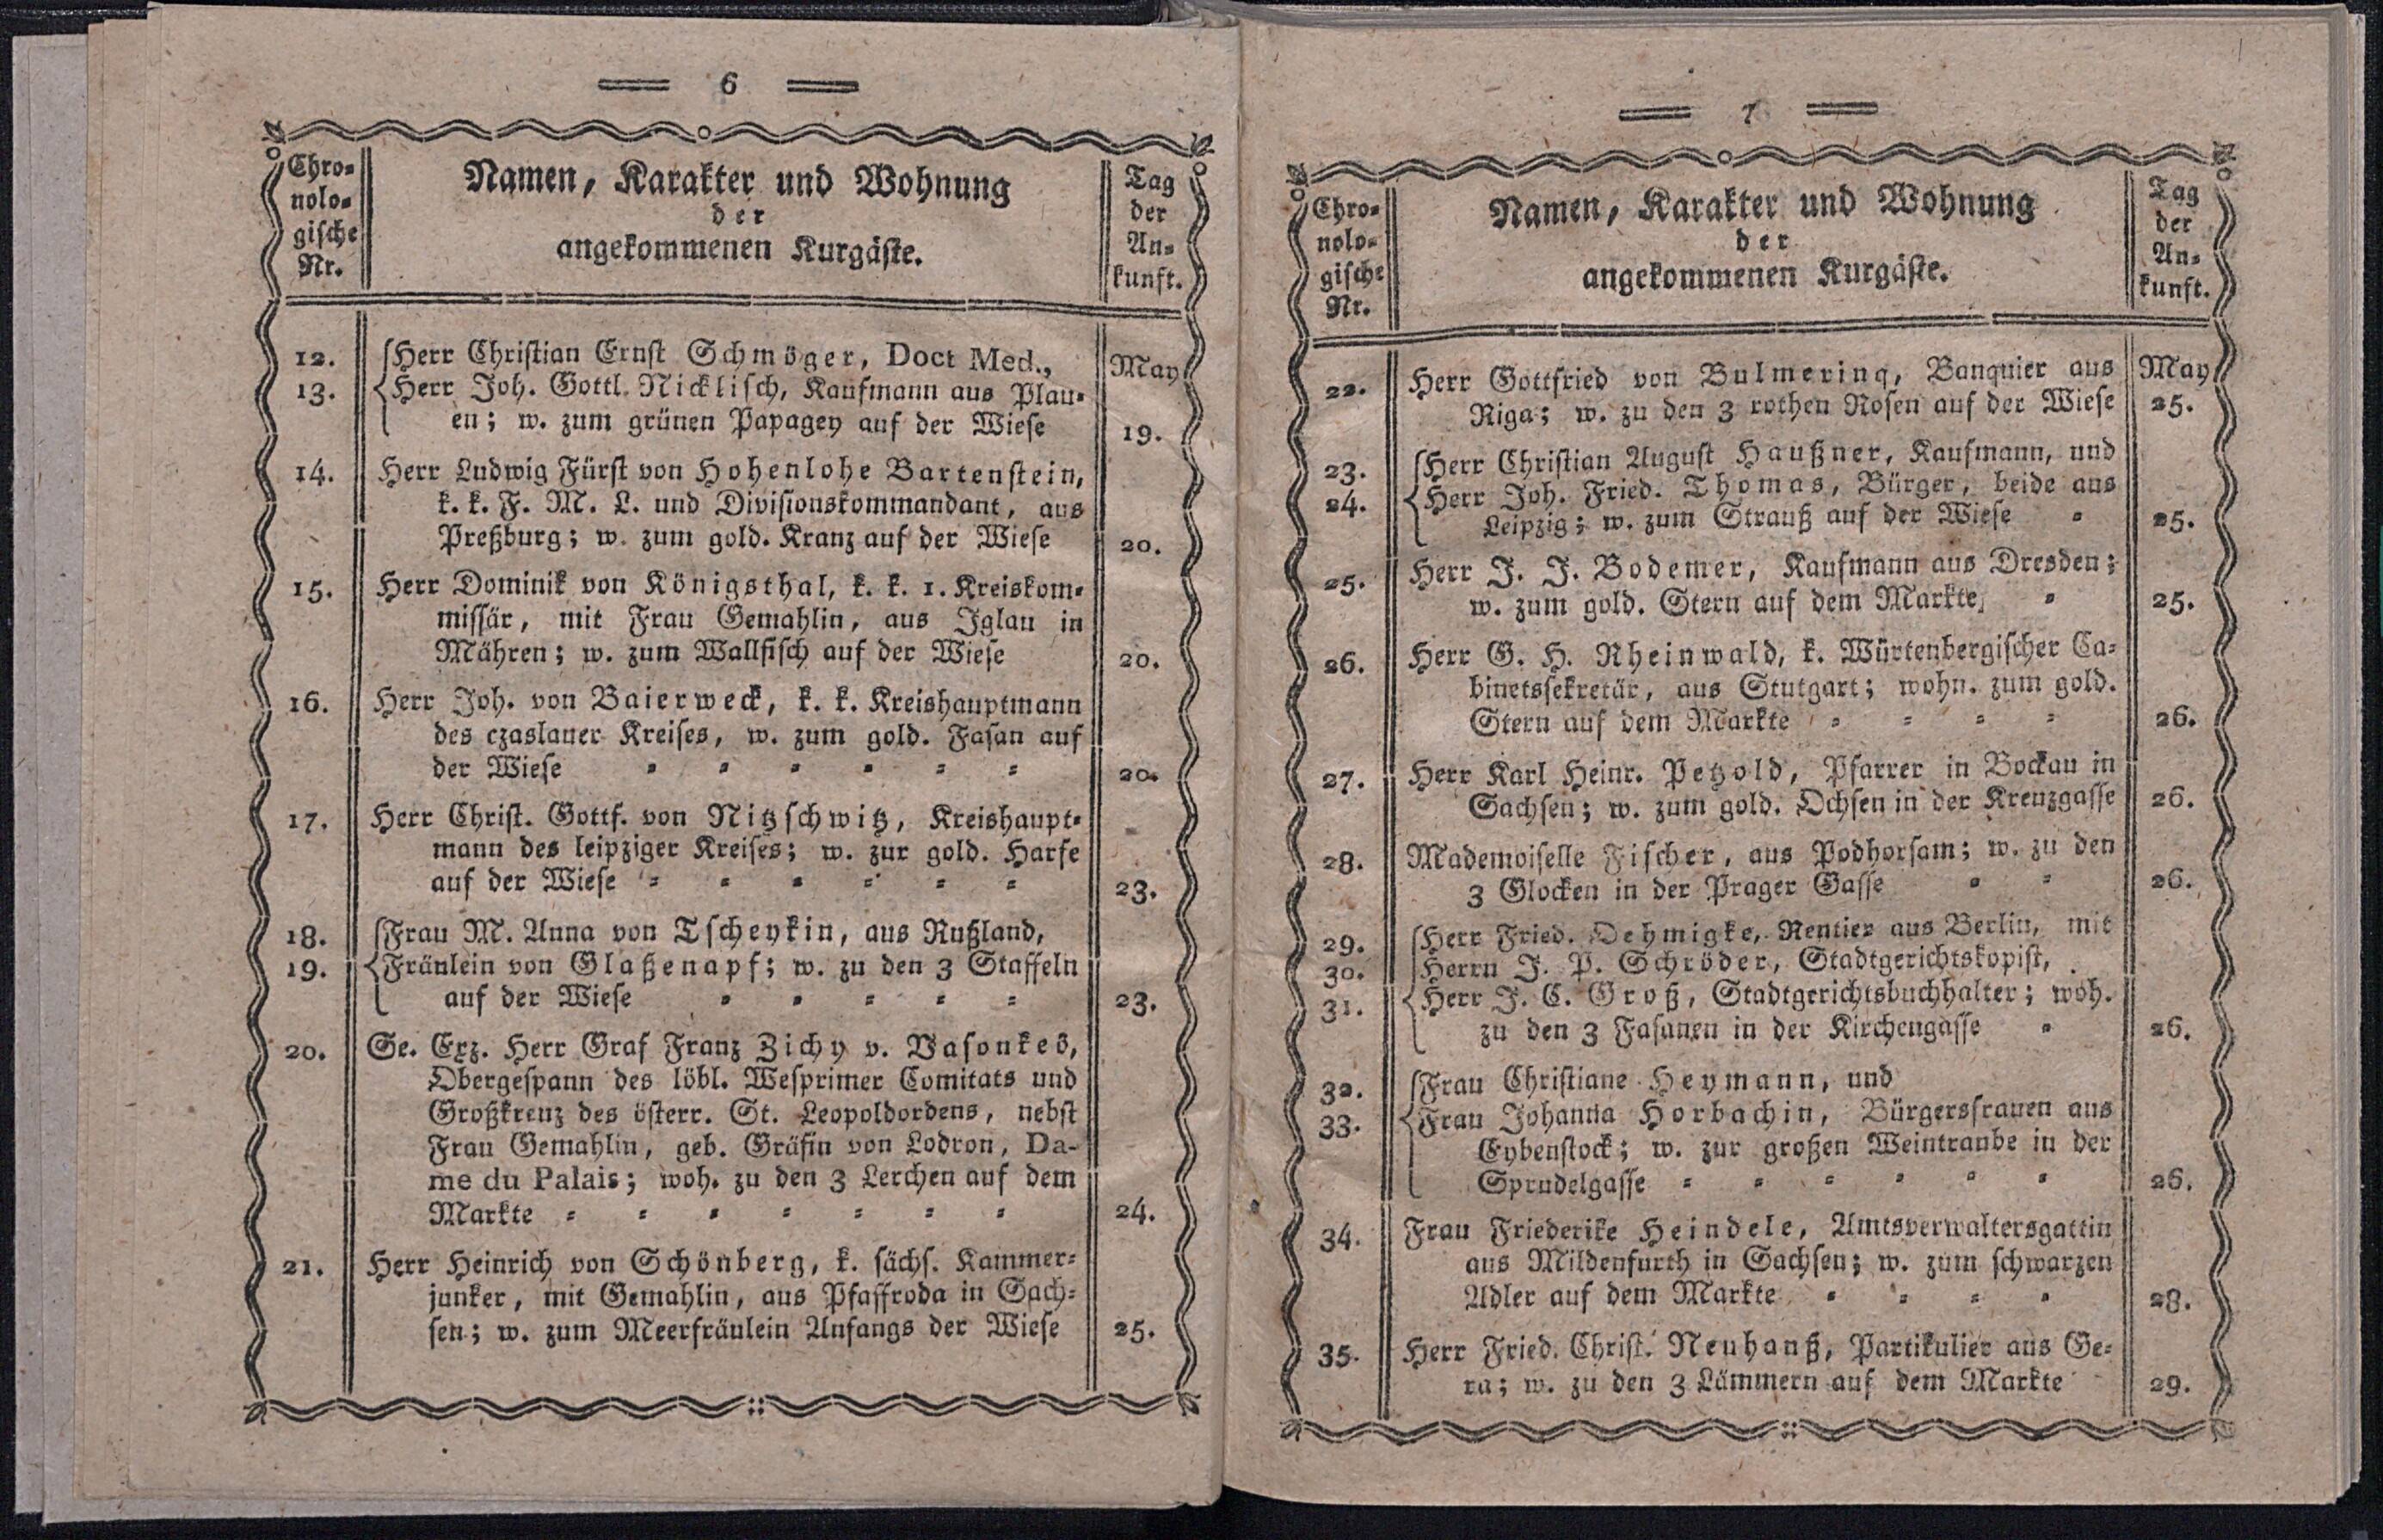 6
Chro-
nolo-
gische
Nr.
Namen, Karakter und Wohnung
der
angekommenen Kurgäste.
Tag
der
An-
kunft.
12. Herr Christian Ernst Schmöger, Doct Med., May
13. Herr Joh. Gottl. Nicklisch, Kaufmann aus Plau-
en; w. zum grünen Papagey auf der Wiese 19.
14. Herr Ludwig Fürst von Hohenlohe Bartenstein,
k. k. F. M. L. und Divisionskommandant, aus
Preßburg; w. zum gold. Kranz auf der Wiese 20.
15. Herr Dominik von Königsthal, k. k. 1. Kreiskom-
missär, mit Frau Gemahlin, aus Iglau in
Mähren; w. zum Wallfisch auf der Wiese 20.
16. Herr Joh. von Baierweck, k. k. Kreishauptmann
des czaslauer Kreises, w. zum gold. Fasan auf
der Wiese = = = = = = 20.
17. Herr Christ. Gottf. von Nitzschwitz, Kreishaupt-
mann des leipziger Kreises; w. zur gold. Harfe
auf der Wiese = = = = = = 23.
18. Frau M. Anna von Tscheykin, aus Rußland,
19. Fräulein von Glaßenapf; w. zu den 3 Staffeln
auf der Wiese = = = = = 23.
20. Se. Exz. Herr Graf Franz Zichy v. Vasonkeö,
Obergespann des löbl. Wesprimer Comitats und
Großkreuz des österr. St. Leopoldordens, nebst
Frau Gemahlin, geb. Gräfin von Lodron, Da-
me du Palais; woh. zu den 3 Lerchen auf dem
Markte = = = = = = = 24.
21. Herr Heinrich von Schönberg, k. sächs. Kammer-
junker, mit Gemahlin, aus Pfaffroda in Sach-
sen; w. zum Meerfräulein Anfangs der Wiese 25.
7
Chro-
nolo-
gische
Nr.
Namen, Karakter und Wohnung
der
angekommenen Kurgäste.
Tag
der
An-
kunft.
22. Herr Gottfried von Bulmerinq, Banquier aus May
Riga; w. zu den 3 rothen Rosen auf der Wiese 25.
23. Herr Christian August Haußner, Kaufmann, und
24. Herr Joh. Fried. Thomas, Bürger, beide aus
Leipzig; w. zum Strauß auf der Wiese = 25.
25. Herr J. J. Bodemer, Kaufmann aus Dresden;
w. zum gold. Stern auf dem Markte, = 25.
26. Herr G. H. Rheinwald, k. Würtenbergischer Ca-
binetssekretär, aus Stutgart; wohn. zum gold.
Stern auf dem Markte = = = = 26.
27. Herr Karl Heinr. Petzold, Pfarrer in Bockau in
Sachsen; w. zum gold. Ochsen in der Kreuzgasse 26.
28. Mademoiselle Fischer, aus Podhorsam; w. zu den
3 Glocken in der Prager Gasse = = 26.
29. Herr Fried. Oehmigke, Rentier aus Berlin, mit
30. Herrn J. P. Schröder, Stadtgerichtskopist,
31. Herr J. C. Groß, Stadtgerichtsbuchhalter; woh.
zu den 3 Fasanen in der Kirchengasse = 26.
32. Frau Christiane Heymann, und
33. Frau Johanna Horbachin, Bürgersfrauen aus
Eybenstock; w. zur großen Weintraube in der
Sprudelgasse = = = = = = 26.
34. Frau Friederike Heindele, Amtsverwaltersgattin
aus Mildenfurth in Sachsen; w. zum schwarzen
Adler auf dem Markte = = = = 28.
35. Herr Fried. Christ. Neuhanß, Partikulier aus Ge-
ra; w. zu den 3 Lämmern auf dem Markte 29.